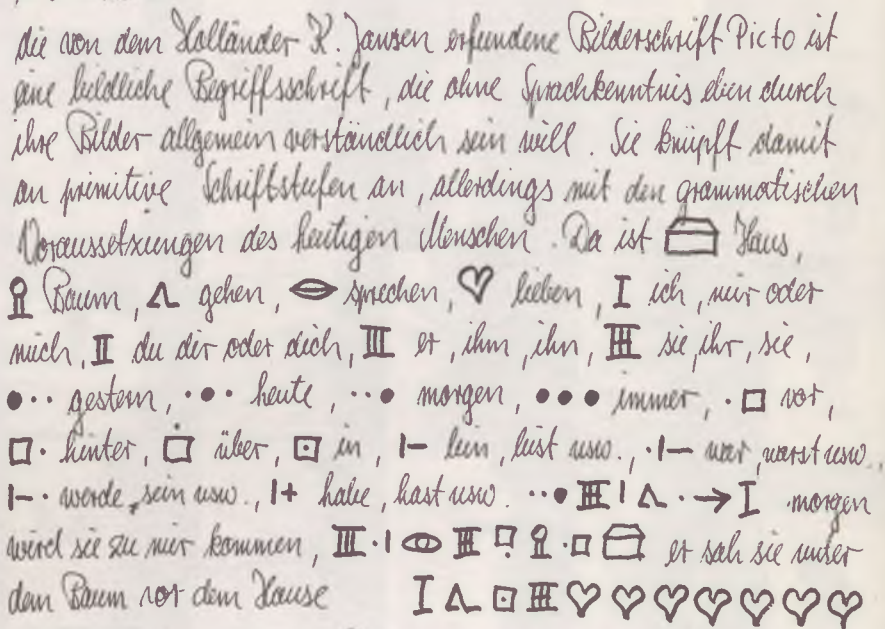 die von dem Holländer K. Jansen erfundene Bilderschrift Picto ist
eine bildliche Begriffsschrift, die ohne Sprachkenntnis eben durch
ihre Bilder allgemein verständlich sein will. Sie knüpft damit
an primitive Schriftstufen an, allerdings mit den grammatischen
Voraussetzungen des heutigen Menschen. Da ist Haus,
Baum, gehen, sprechen, lieben, I ich, mir oder
mich, II du dir oder dich, III er, ihm, ihn, sie, ihr, sie,
●·· gestern, ·●· heute, ··● morgen, ●●● immer, ·□ vor,
□· hinter, über, ⊡ in, I– bin, bist usw., ·I– war, warst usw.,
I–· werde, sein usw., I+ habe, hast usw. ··● I · → I morgen
wird sie zu mir kommen, III·I ·□ er sah sie unter
dem Baum vor dem Hause I ⊡ ♡♡♡♡♡♡♡